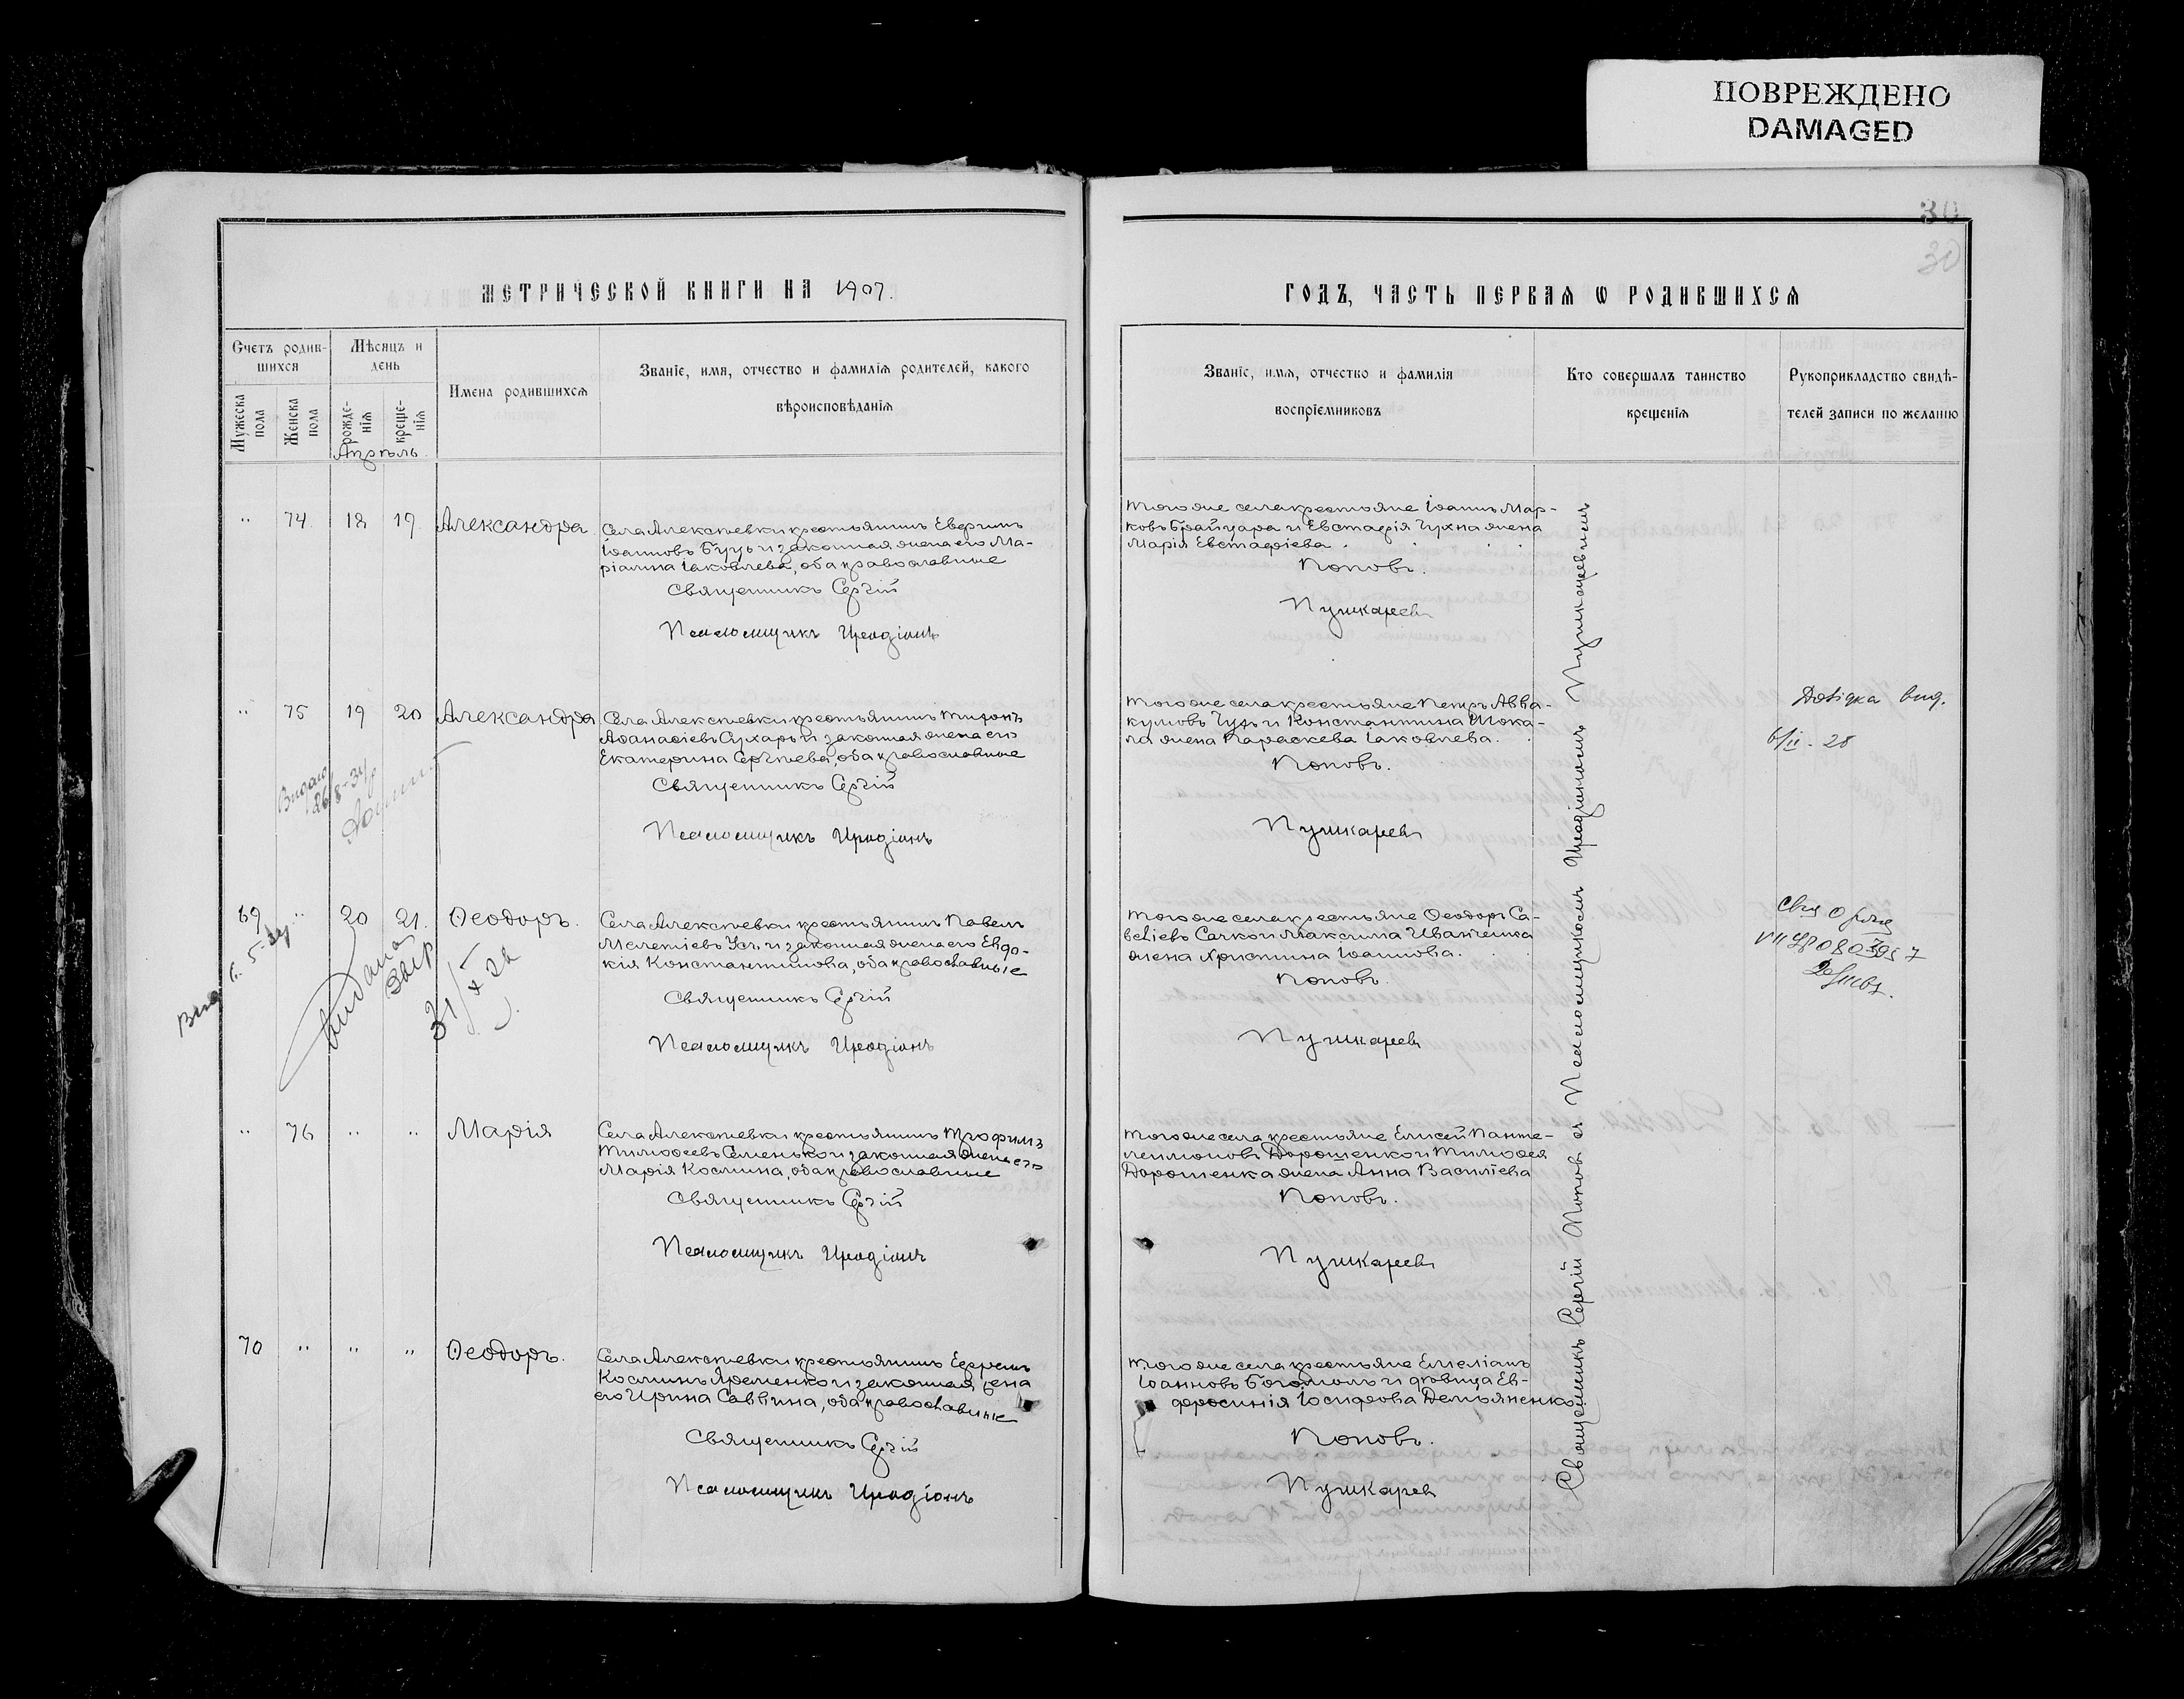 ПОВРЕЖДЕНО
DAMAGED
30
30
МЕТРИЧЕСКОЙ КНИГИ НА 1907.
Счетъ родив-
шихся
Мѣсяцъ и
день
Имена родившихся
Званіе, имя, отчество и фамилія родителей, какого
вѣроисповѣданія
Мужеска
пола
Женска
пола
рожде-
нія
креще-
нія
Апрѣль
" 74. 18 19 Александра
Села Алексѣевки крестьянинъ
Іоанновъ Буцъ и законная жена его Ма-
ріанна Іаковлева, оба православные
Священникъ Сергій
Псаломщикъ Иродіонъ
" 75 19 20 Александра
Села Алексѣевки крестьянинъ Тихонъ
Аѳанасіевъ Сухарь и законная жена его
Екатерина Сергѣева, оба православные
Священникъ Сергій
Псаломщикъ Иродіонъ
Видано
26/8-34
69 " 20 21. Ѳеодоръ.
Села Алексѣевки крестьянинъ Павелъ
Мелетіевъ Усъ и законная жена его Евдо-
кія Константинова, оба православные
Священникъ Сергій
Псаломщикъ Иродіонъ
видана
31/X
" 76 " " Марія
Села Алексѣевки крестьянинъ Трофимъ
Тимоѳеевъ Семенько и законная жена его
Марія Космина, оба православные
Священникъ Сергій
Псаломщикъ Иродіонъ
70 " " " Ѳеодоръ.
Села Алексѣевки крестьянинъ Ефремъ
Косминъ Яременко и законная жена
его Ирина Саввина, оба православные
Священникъ Сергій
Псаломщикъ Иродіонъ
ГОДЪ, ЧАСТЬ ПЕРВАЯ Ѡ РОДИВШИХСЯ
Званіе, имя, отчество и фамилія
воспріемниковъ
Кто совершалъ таинство
крещенія
Рукоприкладство свидѣ-
телей записи по желанію
Того же села крестьяне Іоаннъ Мар-
ковъ и Евстафія Чухна жена
Марія Евстафіева.
Поповъ.
Пушкаревъ
Того же села крестьяне Петръ Авва-
кумовъ и Константина Шока-
ла жена Параскева Іаковлева.
Поповъ.
Пушкаревъ
Довідка вид.
6/II-28
Того же села крестьяне Ѳеодоръ Са-
веліевъ Сачко и Максима Иванченка
жена Христина Іоаннова.
Поповъ.
Пушкаревъ
Того же села крестьяне Елисей Панте-
леимоновъ Дорошенко и Тимоѳея
Дорошенка жена Анна Василіева
Поповъ.
Пушкаревъ
Того же села крестьяне Емеліанъ
Іоанновъ Богомолъ и дѣвица Ев-
фросинія Іосифова Демьяненко
Поповъ.
Пушкаревъ
Священникъ Сергій Поповъ съ Псаломщикомъ Иродіономъ Пушкаревымъ